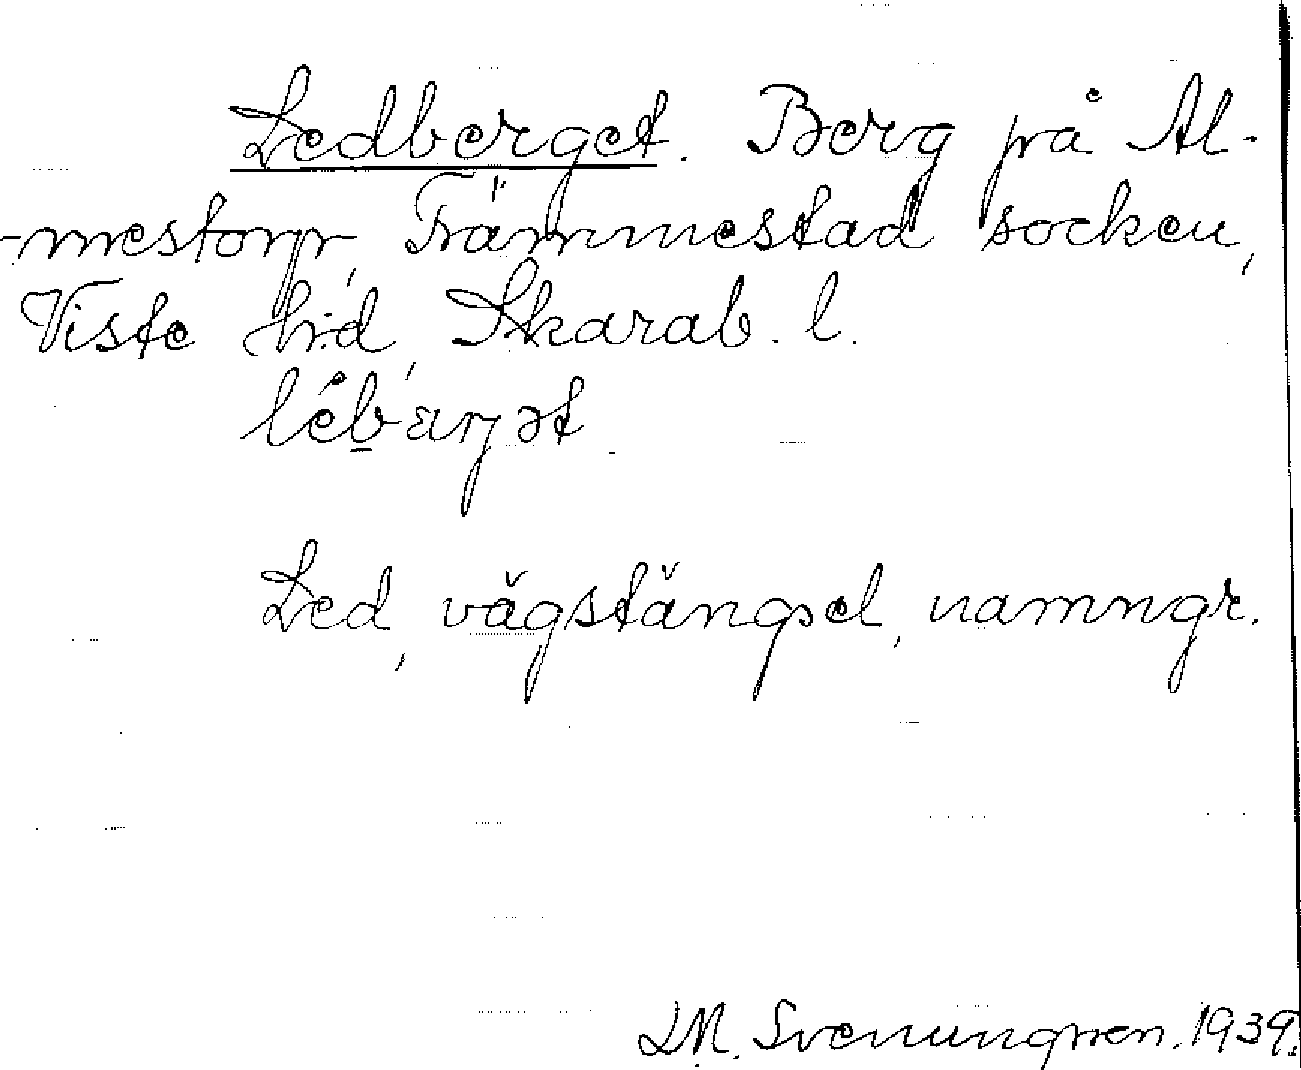 Ledberget. Berg på Al-
-mestorp, Främmestad socken,
Viste h:d, Skarab. l.
Led, vägstängsel, namngr.
L.M. Svenungsson. 1939.